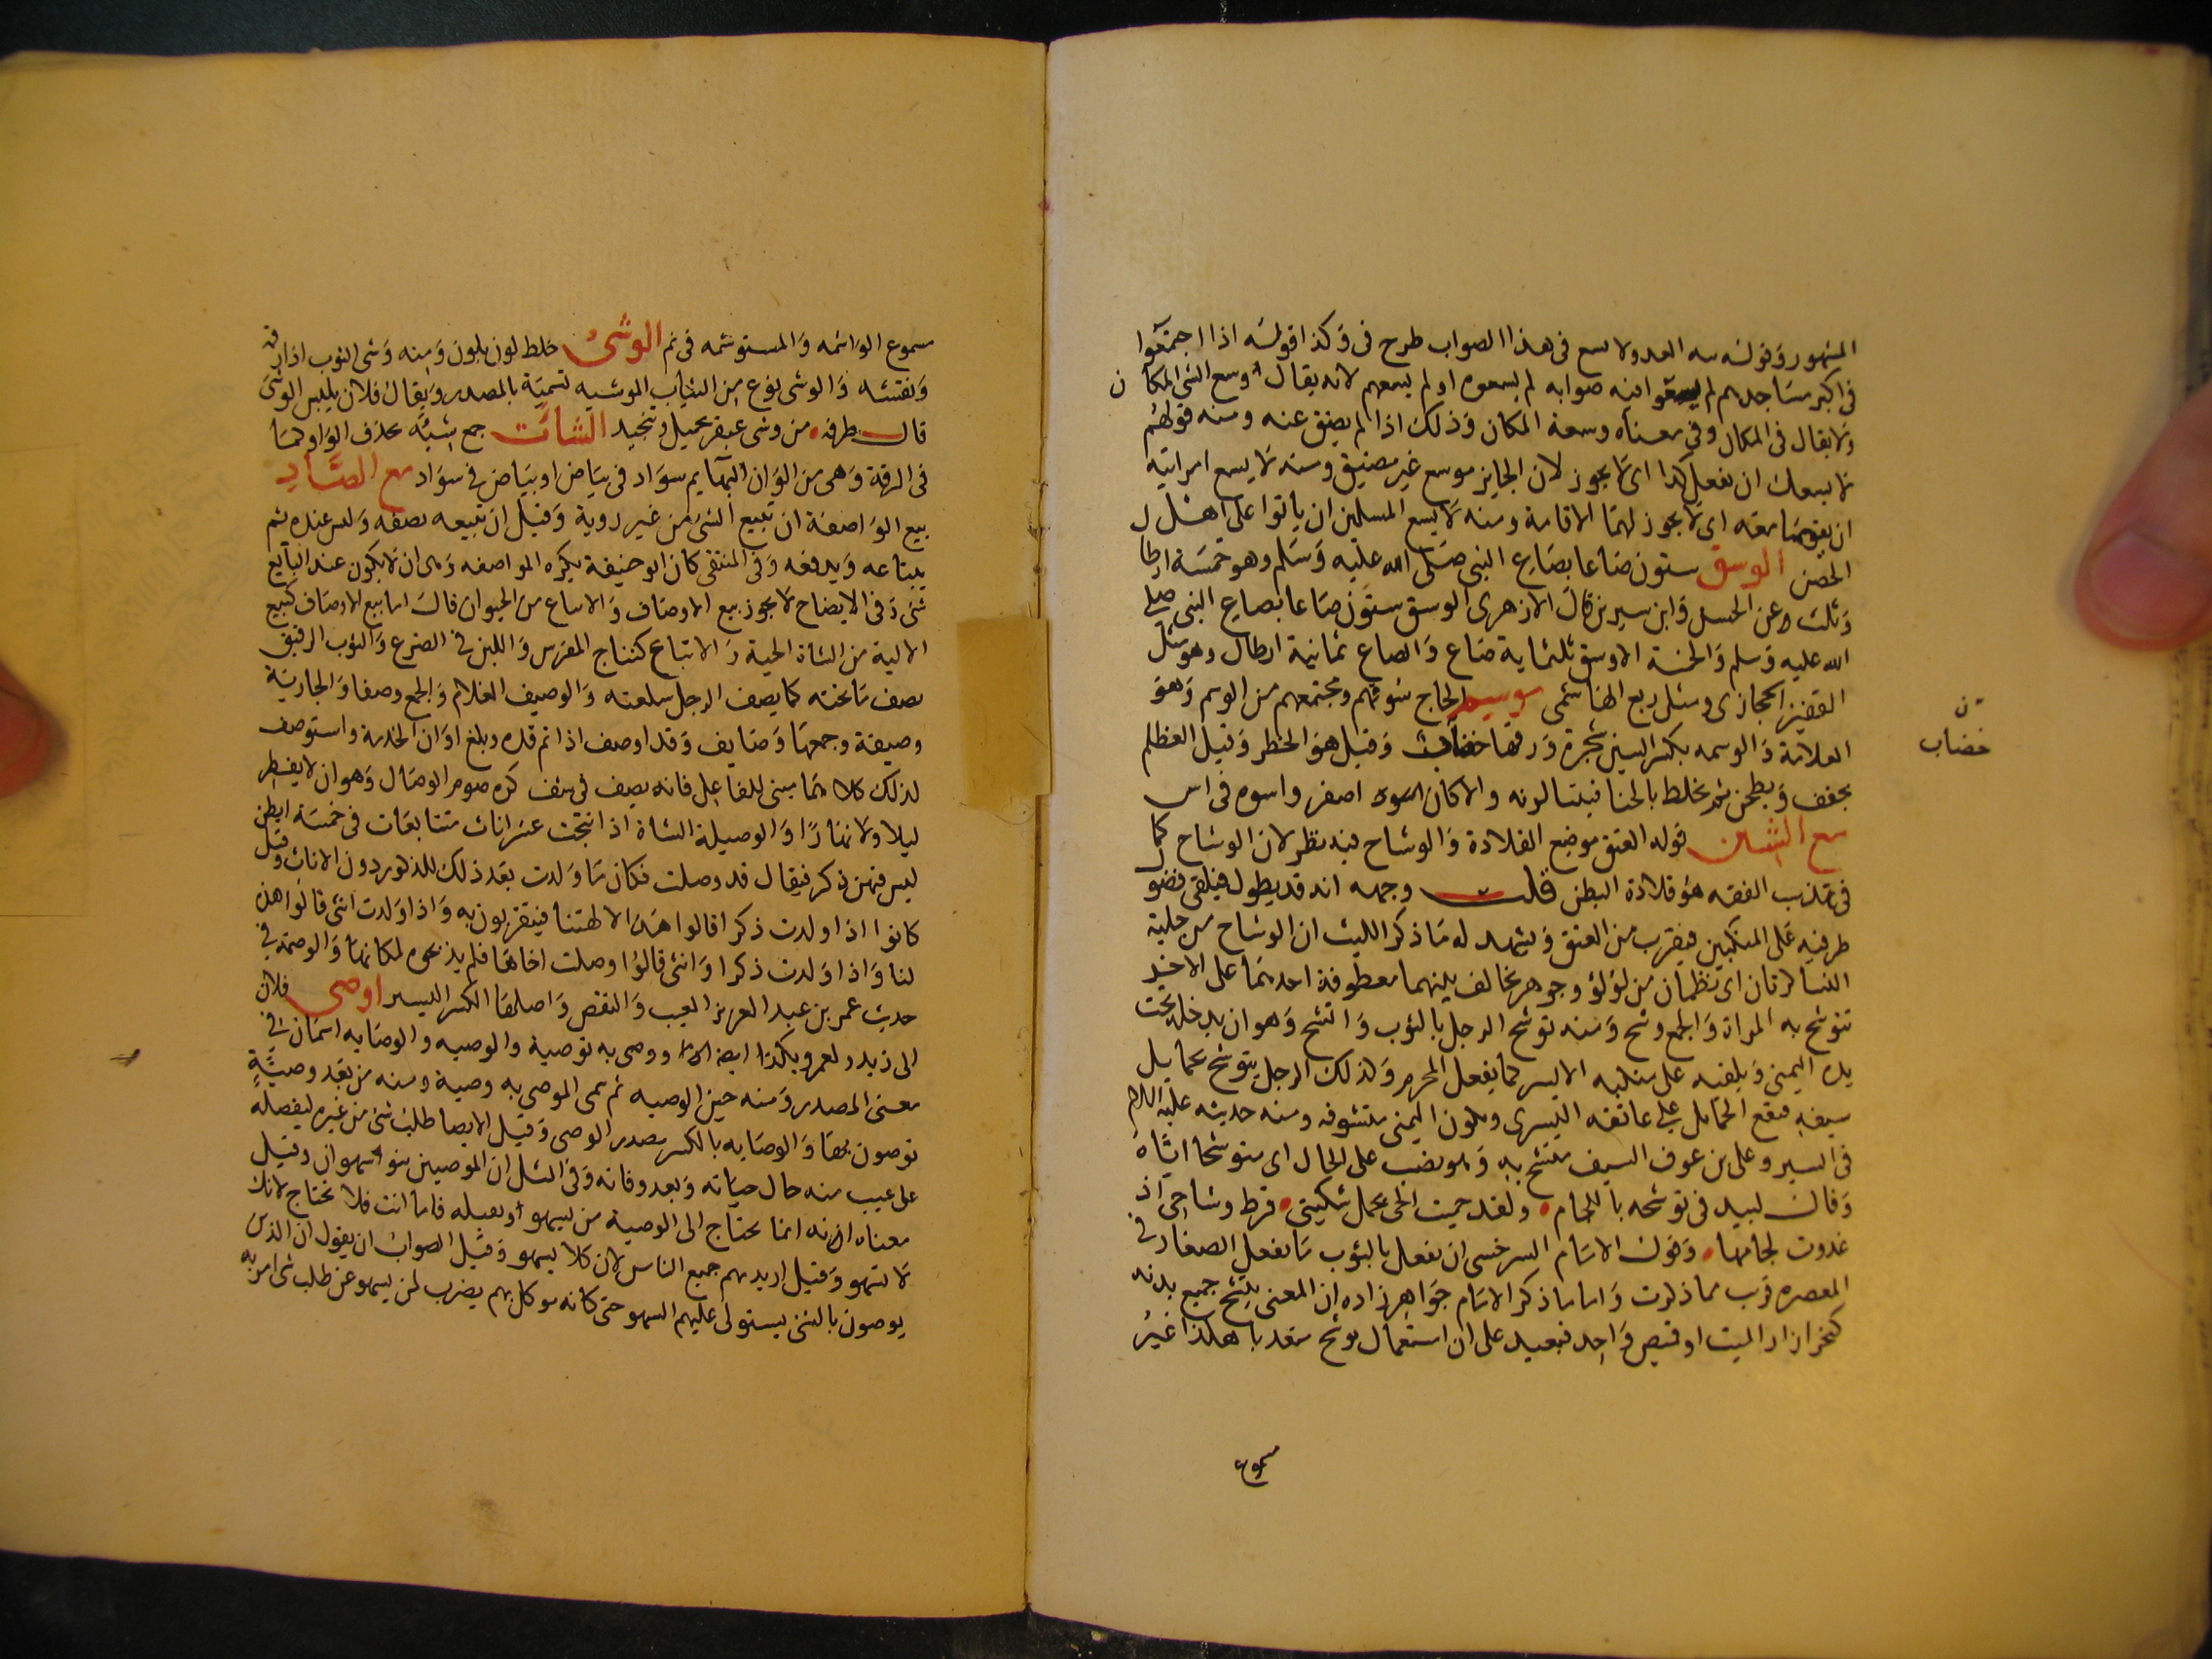 المشهور وقوله سه العدو ولا سع فى هذا الصواب طرح فى وكذا قولهٌ اذا اجتمعوا
فى اكبر مساجدهم لم يسعوا فيه صوابه لم يسعوه او لم يسعهم لانه يقال وسع الشى المكان
ولا يقال فى المكان وفى معناه وسعه المكان وذلك اذا لم يضق عنه ومنه قولهم
لا يسعك ان تفعل كذا اى لا يجوز لان الجايز موسع غير مضيق ومنه لا يسع امراتيه
ان يقيما معه اى لا يجوز لهما الاقامة ومنه لا يسع المسلمين ان ياتوا على اهل
الحصن الوسق ستون صاعا بصاع النبى صلى الله عليه وسلم وهو خمسة ارطال
وثلث وعن الحسن وابن سيرين قال الازهرى الوسق ستون صاعا بصاع النبى صلى
الله عليه وسلم والخمسة الاوسق ثلثماية صاع والصاع ثمانية ارطال وهو مثل
القفيز الحجازى ومثل ربع الهاشمى موسم الحاج سوقهم ومجتمعهم من الوسم وهو
العلامة والوسمه بكسر السين شجرة ورقها خضاب وقيل هو الخطر وقيل العظلم
يجفف ويطحن ثم يخلط بالحنا فيقنا لونه والا كان اصفر واسوه فى اس
مع الشين قوله العنق موضع القلادة والوشاح فيه نظر لان الوشاح كما
فى تهذيب الفقه هو قلادة البطن قلت وجهه انه قد يطول فيلقى فضول
طرفيه على المنكبين فيقرب من العنق ويشهد له ما ذكر الليث ان الوشاح من حلية
النسا كرسان اى نظمان من لؤلؤ وجوهر يخالف بينهما معطوفة احدهما على الاخر
تتوشح به المراة والجمع وشح ومنه توشح الرجل بالثوب واتشح وهو ان يدخله تحت
يده اليمنى ويلقيه على منكبه الايسر كما يفعل المحرم وكذلك الرجل يتوشح بحمايل
سيفه فتقع الحمايل على عاتقه اليسرى وتكون اليمنى مكشوفه ومنه حديثه عليه السلام
فى السير وعلى بن عوف السيف متشح به وهو بضب على الحال اى متوشحا اياه
وقال لبيد فى توشحه باللجام ولقد حميت الحى تحمل شكتى فرط وشاحى اذ
غدوت لجامها وقول الامام السرخسى ان تفعل بالثوب ما يفعل القصار فى
المقصره قرب مما ذكرت واما ما ذكر الامام جواهر زاده ان المعنى يتشح جميع بدنه
كنحو ازار الميت او قميص واحد فبعيد على ان استعمال توشح متعديا هكذا غير
ن
خضاب
مسموع
مسموع الواشمه والمستوشمه فى نم الوشى خلط لون بلون ومنه وشى الثوب اذا رقمه
ونقشه والوشى نوع من الثياب الموشيه تسمية بالمصدر ويقال فلان يلبس الوشى
قال طرفه من وشى عبقر تجليل وتنجيد الشات جمع شيه بحذف الواو كما
فى الرقة وهى من الوان البهايم سواد فى بياض او بياض فى سواد مع الصاد
بيع المواصفة ان تبيع الشى من غير روية وقيل ان تبيعه بصفه وليس عنده ثم
يبتاعه ويدفعه وفى المنتقى كان ابو حنيفة يكره المواصفه وهى ان لا يكون عند البايع
شى وفى الايضاح لا يجوز بيع الاوصاف والاتباع من الحيوان قال اما بيع الاوصاف كبيع
الالية من الشاة الحية والاتباع كنتاج الفرس واللبن فى الضرع والثوب الرقيق
يصف ما تحته كما يصف الرجل سلعته والوصيف الغلام والجمع وصفا والجارية
وصيفة وجمعها وصايف وقد اوصف اذا تم قده وبلغ اوان الخدمة واستوصف
لذلك كلاهما مبنى للفاعل فانه يصف فى شف كره صوم الوصال وهو ان لا يفطر
ليلا ولا نهارا والوصيلة الشاة اذا انتجت عشر اناث متتابعات فى خمسة ابطن
ليس فيهن ذكر فيقال قد وصلت فكان ما ولدت بعد ذلك للذكور دون الاناث وقيل
كانوا اذا ولدت ذكرا قالوا هذا لالهتنا فيتقربون به واذا ولدت انثى قالوا هذه
لنا واذا ولدت ذكرا وانثى قالوا وصلت اخاها فلم يذبحوه لمكانها والوصمة فى
حديث عمر بن عبد العزيز العيب والنقص واصلها الكسر اليسير اوصى فلان
الى زيد ولعمرو بكذا ايصا ووصى به توصية والوصيه والوصايه اسمان فى
معنى المصدر ومنه حين الوصيه ثم سمى الموصى به وصية ومنه من بعد وصية
توصون بها والوصايه بالكسر مصدر الوصى وقيل الايصا طلب شى من غيره ليفعله
على غيب منه حال حياته وبعد وفاته وفى المثل ان الموصين بنو سهوان وقيل
معناه انه انما يحتاج الى الوصية من يسهو ويغفله فاما انت فلا تحتاج لانك
لا تسهو وقيل اريد بهم جميع الناس لان كلا يسهو وقيل الصواب ان يقول ان الذين
يوصون بالشى يستولى عليهم السهو حتى كانه موكل بهم يضرب لمن يسهو عن طلب شى امر به